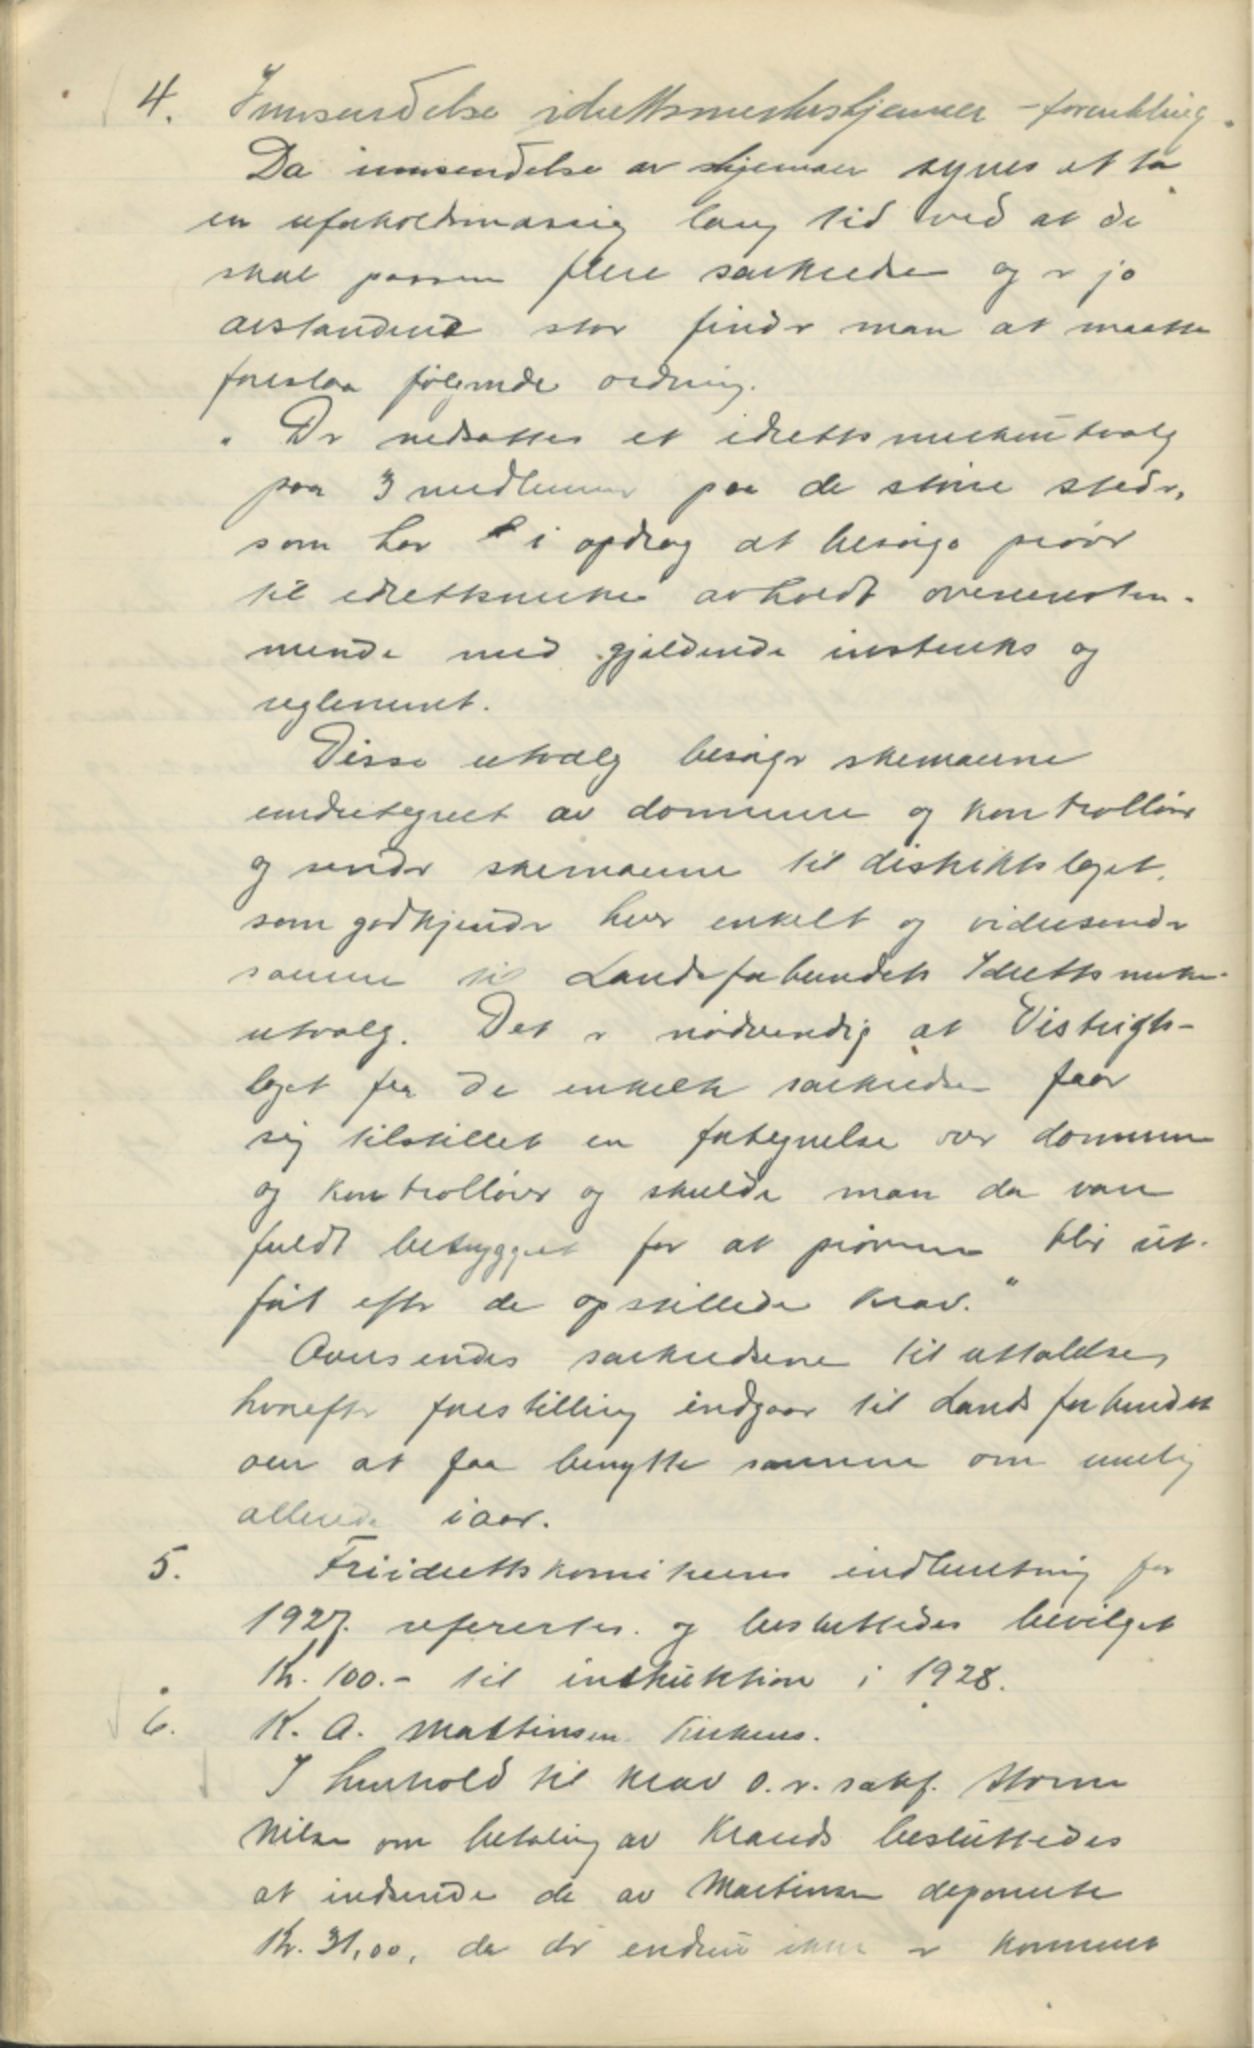 4. Innsendelse idrettsmerkeskjemaer - forenkling.
Da innsendelse av skjemaer synes at ta
en uforholdsmæssig lang tid ved at de
skal passere flere sorkredse og er jo
avstandene stor finder man at maatte
foreslaa følgende ordning.
" Der nedsættes et idrettsmerkeutvalg
paa 3 medlemmer paa de større steder,
som har i opdrag at besørge prøver
til idrettsmerke avholdt overensstem-
mende med gjældende instruks og
reglement.
Disse utvalg besørger skemaerne
undertegnet av dommere og kontrollører
og sender skemaerne til distriktslaget.
som godkjender hver enkelt og videresender
samme til Landsforbundets Idrettsmerke-
utvalg. Det er nødvendig at Distrikts-
laget fra de enkelte sorkredser faar
sig tilstillet en fortegnelse over dommere
og kontrollører og skulde man da være
fuldt betrygget for at prøvene blir ut-
ført efter de opstillede krav."
Oversendes sorkredsene til uttalelse,
hvorefter forestilling indgaar til Landsforbundet
om at faa benytte samme om mulig
allerede iaar.
5. Friidrettskomiteens indberetning for
1927. refertes. og besluttedes bevilget
Kr. 100.- til instruktion i 1928.
6. K. A. Martinsen Kirkenes.
I henhold til krav o.r. sakf.
Nilsen om betaling av Krands besluttedes
at indsende de av Martinsen deponerte
Kr. 31,00, da der endnu ikke er kommet